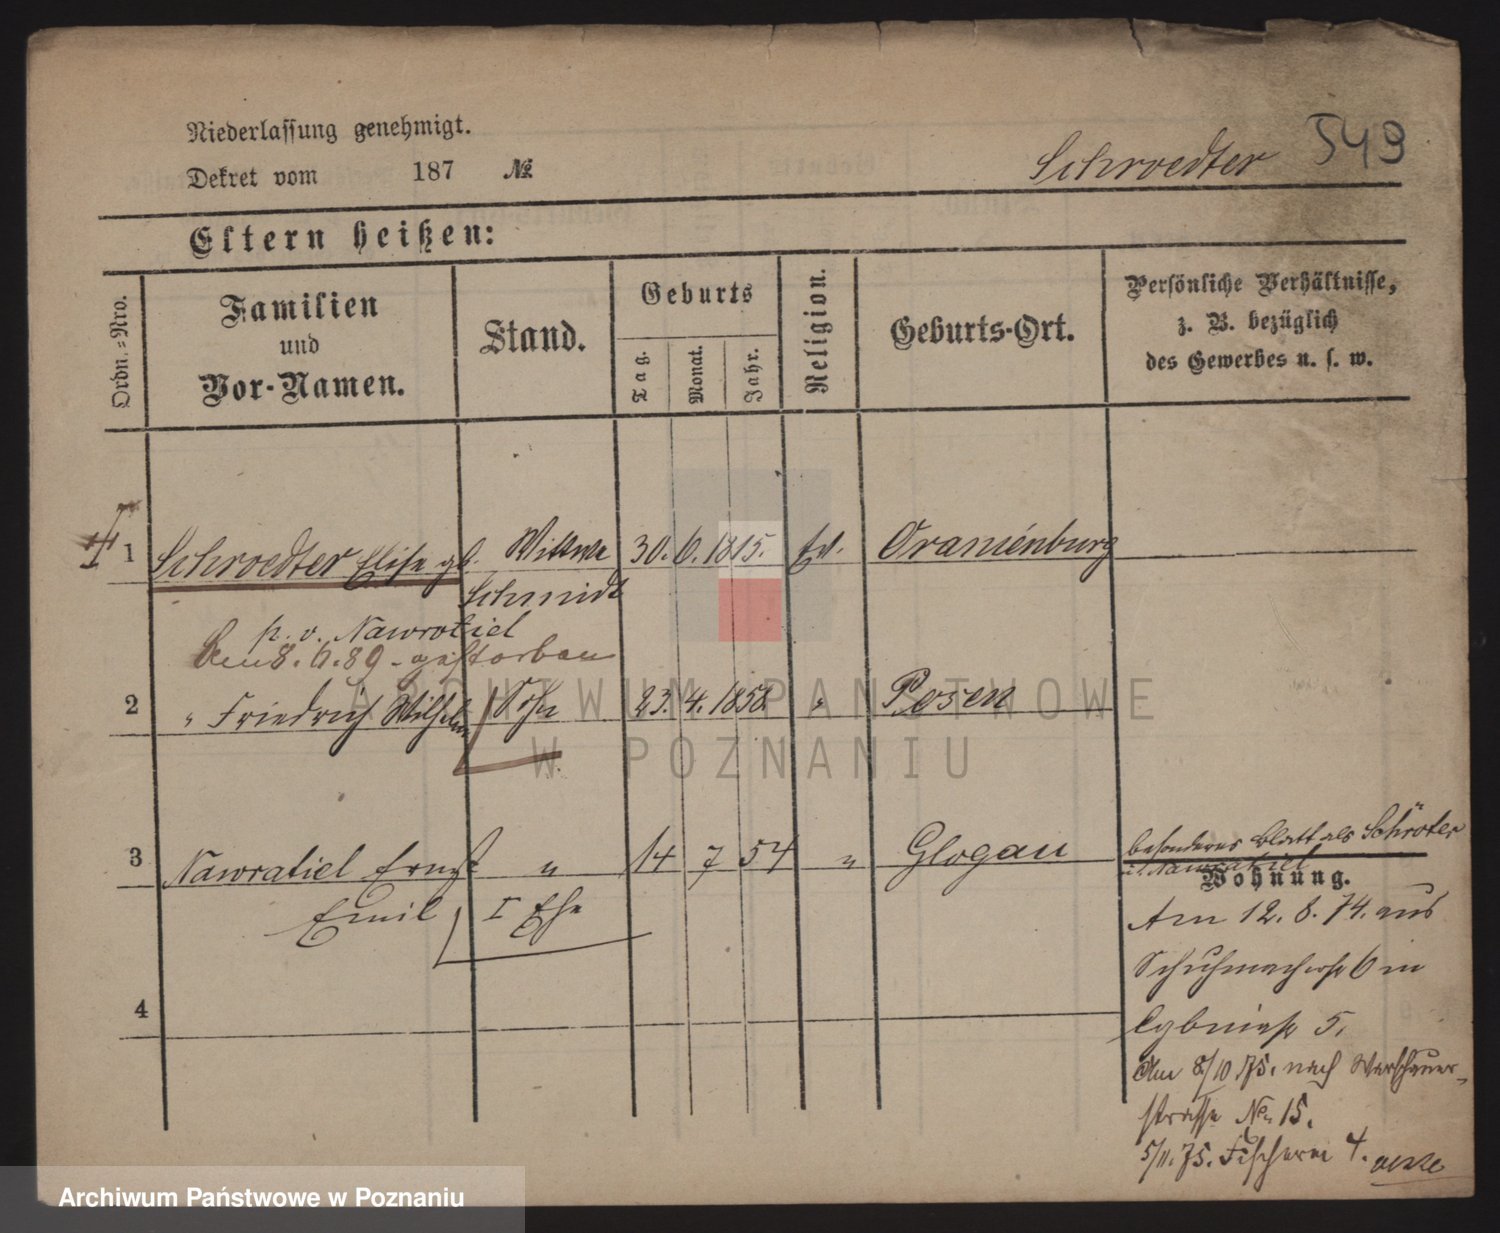 Niederlassung genehmigt.
Dekret vom 187 №
Schroedter 549
Eltern heißen:
Ordn.-Nro.
Familien
und
Vor-Namen.
Stand.
Geburts
Tag.
Monat.
Jahr.
Religion.
Geburts-Ort.
Persönliche Verhältnisse,
z. B. bezüglich
des Gewerbes u. s. w.
1 Schroedter Elise gb. Wittwe 30. 6. 1815. Ev. Oranienburg
Schmidt
p. v. Nawratiel
Am 8. 6. 89 gestorben
2 " Friedrich Wilhelm Sohn 23. 4. 1858. " Posen
3 Nawratiel Ernst " 14 7 54 " Glogau
Emil I Ehe
4
besonderes Blatt als Schröter
u. Nawratiel
Wohnung.
Am 12. 8. 74. aus
Schuhmacherstr 6 in
5.
Am 8/10. 75. nach Warschauer-
strasse No. 15.
5/11. 75. Fischerei 4.
ARCHIWUM PAŃSTWOWE
W POZNANIU
Archiwum Państwowe w Poznaniu